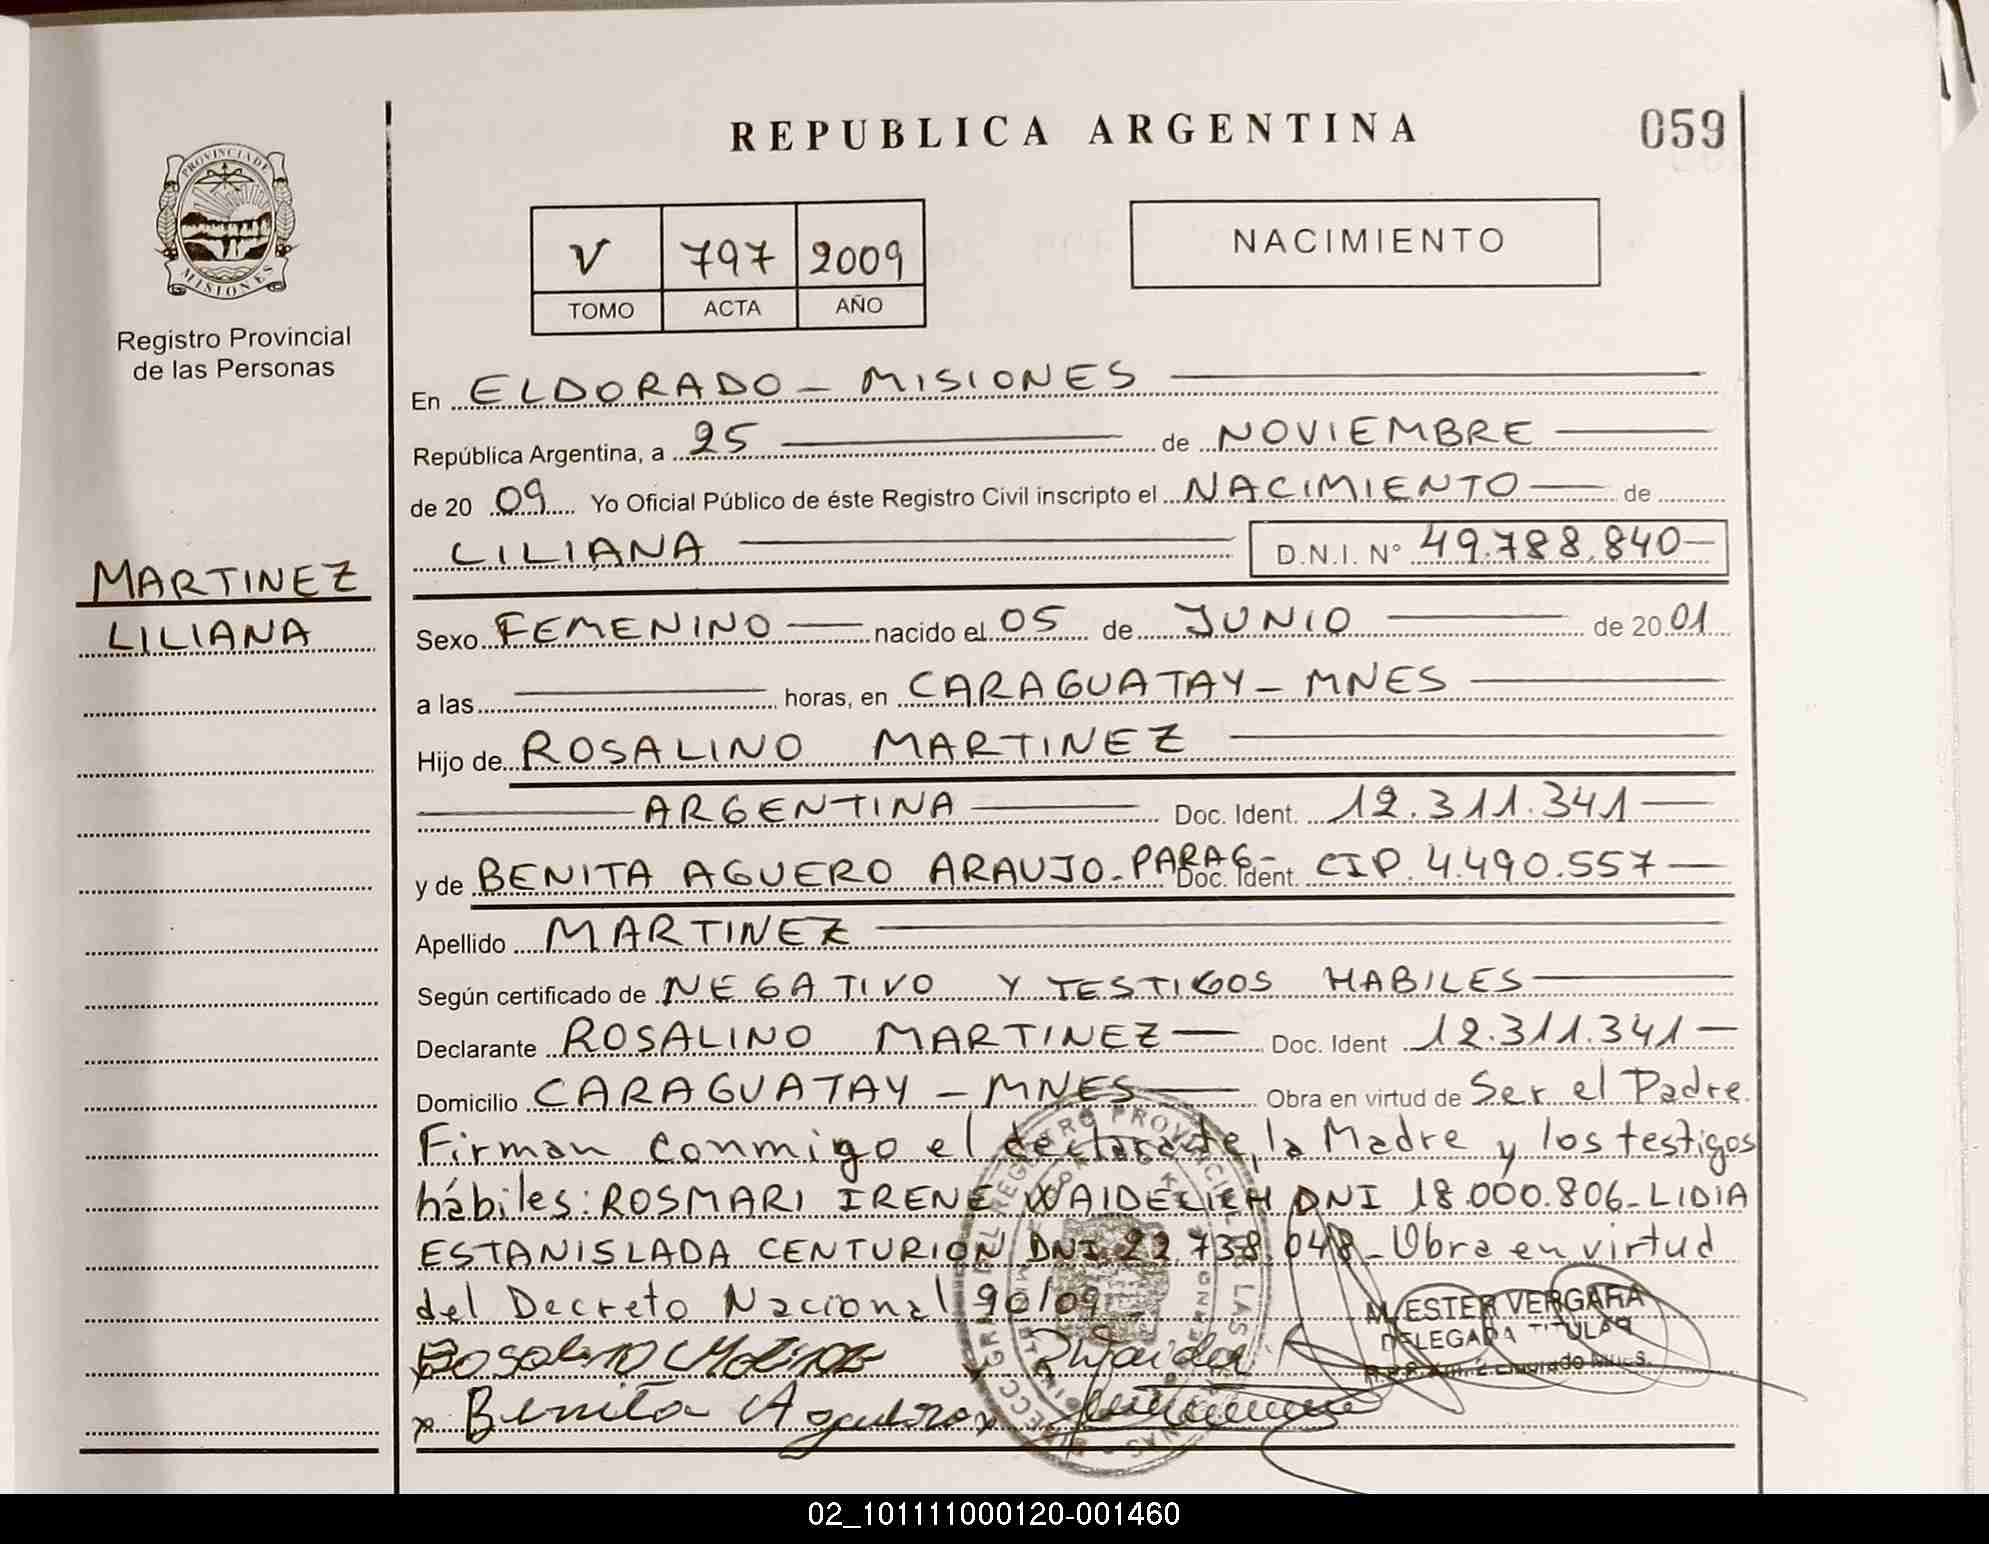 REPUBLICA ARGENTINA
059
PROVINCIA DE
MISIONES
Registro Provincial
de las Personas
V 797 2009
TOMO ACTA AÑO
NACIMIENTO
En ELDORADO - MISIONES
República Argentina, a 25 de NOVIEMBRE
de 20 09 Yo Oficial Público de éste Registro Civil inscripto el NACIMIENTO de
LILIANA D.N.I. N° 49.788.840
MARTINEZ
LILIANA
Sexo FEMENINO nacido el 05 de JUNIO de 20 01
a las horas, en CARAGUATAY - MNES
Hijo de ROSALINO MARTINEZ
ARGENTINA Doc. Ident. 12.311.341
y de BENITA AGUERO ARAUJO - PARAG - Doc. Ident. CIP. 4.490.557
Apellido MARTINEZ
Según certificado de NEGATIVO Y TESTIGOS HABILES
Declarante ROSALINO MARTINEZ Doc. Ident 12.311.341
Domicilio CARAGUATAY - MNES Obra en virtud de Ser el Padre.
Firman conmigo el declarante, la Madre y los testigos
hábiles: ROSMARI IRENE WAIDELICH DNI 18.000.806 - LIDIA
ESTANISLADA CENTURION DNI 22.738.048 - Obra en virtud
del Decreto Nacional 90/09
M. ESTER VERGARA
DELEGADA TITULAR
Benita Aguero
02_101111000120-001460